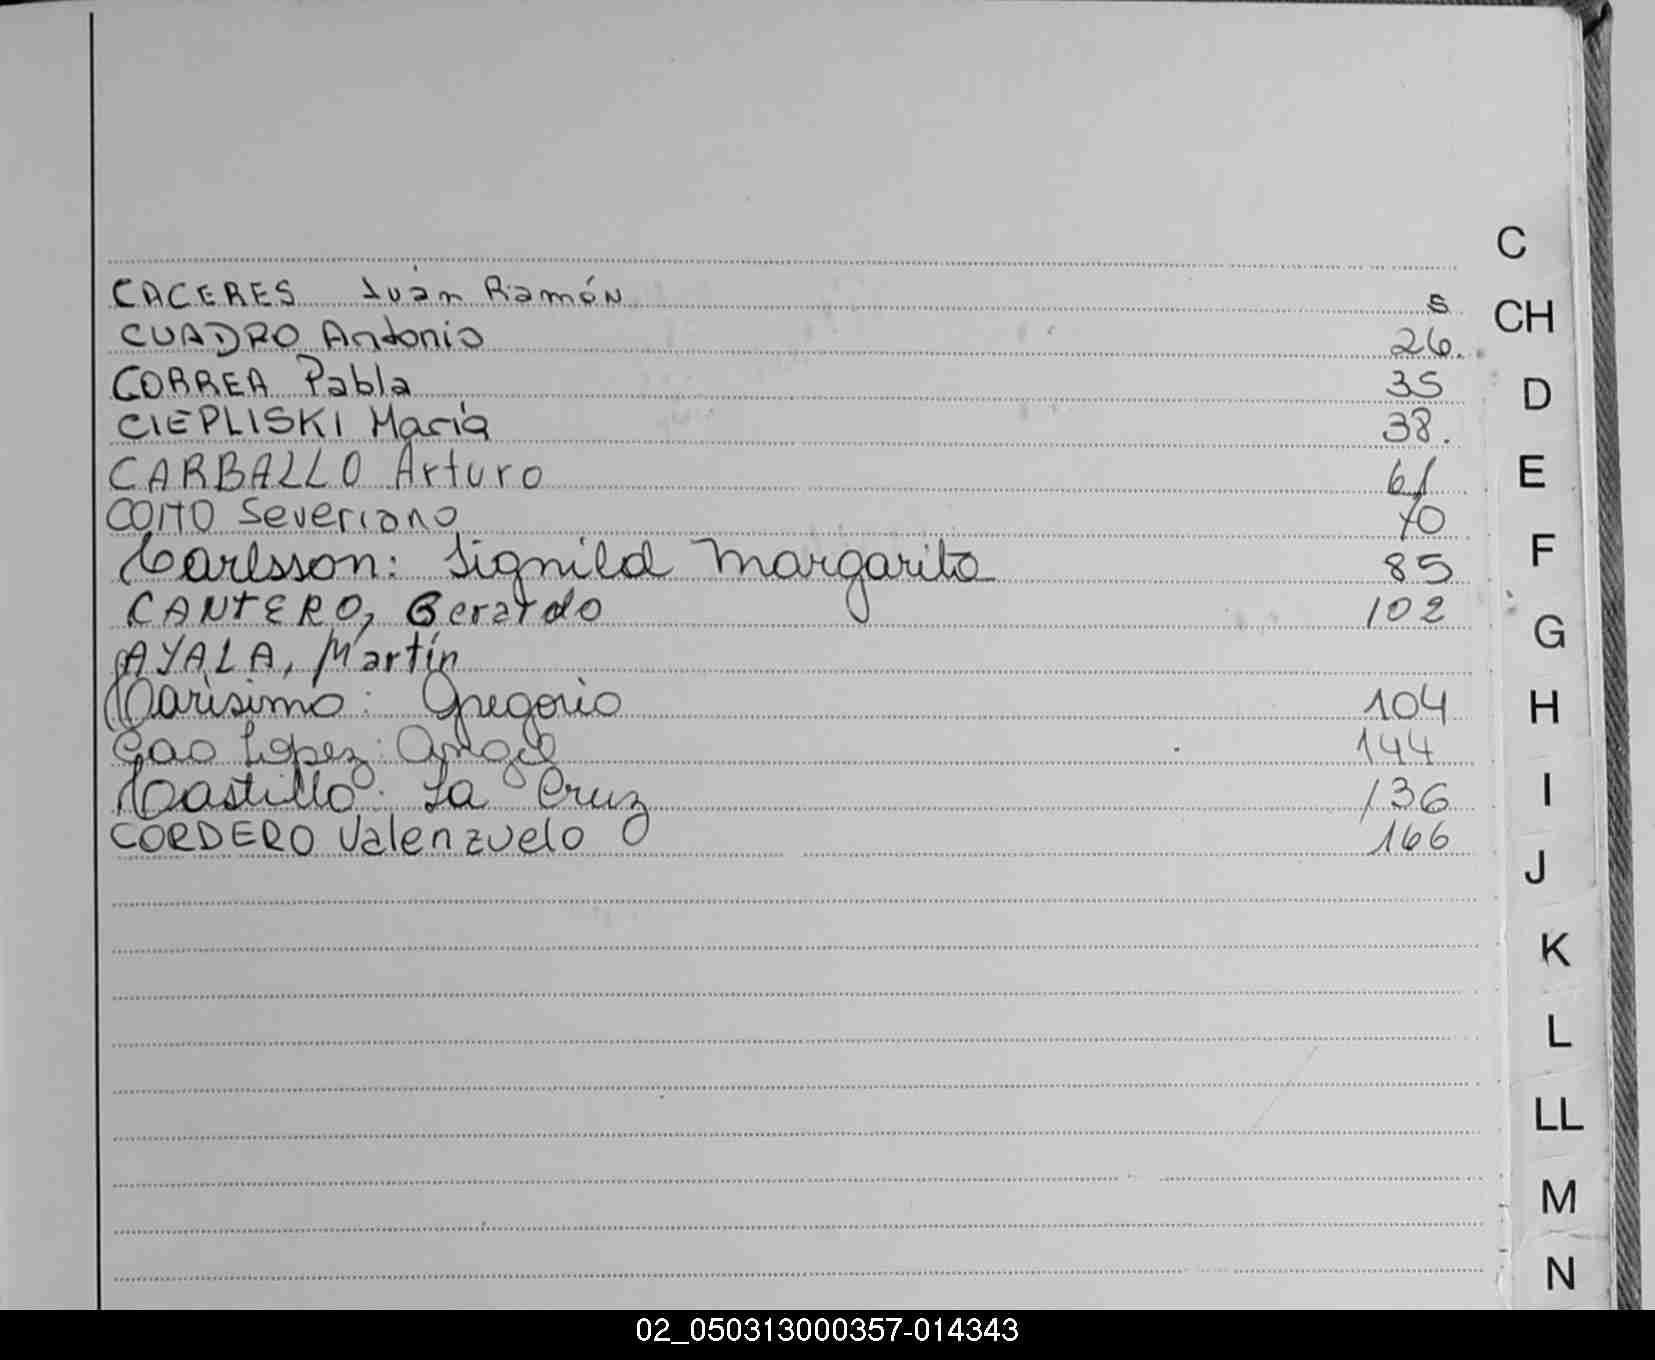 C
CACERES Juan Ramón 5
CH
CUADRO Antonio 26.
CORREA Pabla 35
D
CIEPLISKI María 38.
CARBALLO Arturo 61
E
COITO Severiano 70
Carlsson: Signild Margarita 85
F
CANTERO, Gerardo 102
G
AYALA, Martín
Carisimo: Gregorio 104
H
Cao Lopez: Angel 144
Castillo: La Cruz 136
I
CORDERO Valenzuelo 166
J
K
L
LL
M
N
02_050313000357-014343